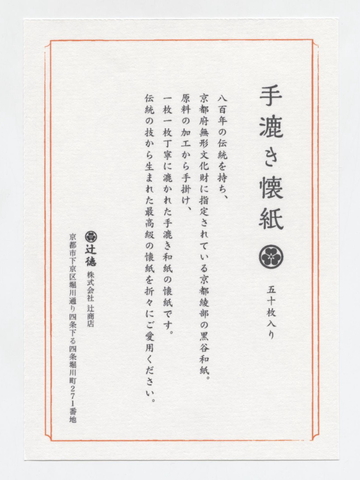 手漉き懐紙
五十枚入り
八百年の伝統を持ち、
京都府無形文化財に指定されている京都綾部の黒谷和紙。
原料の加工から手掛け、
一枚一枚丁寧に漉かれた手漉き和紙の懐紙です。
伝統の技から生まれた最高級の懐紙を折々にご愛用ください。
辻徳 株式会社 辻商店
京都市下京区堀川通り四条下る四条堀川町271番地